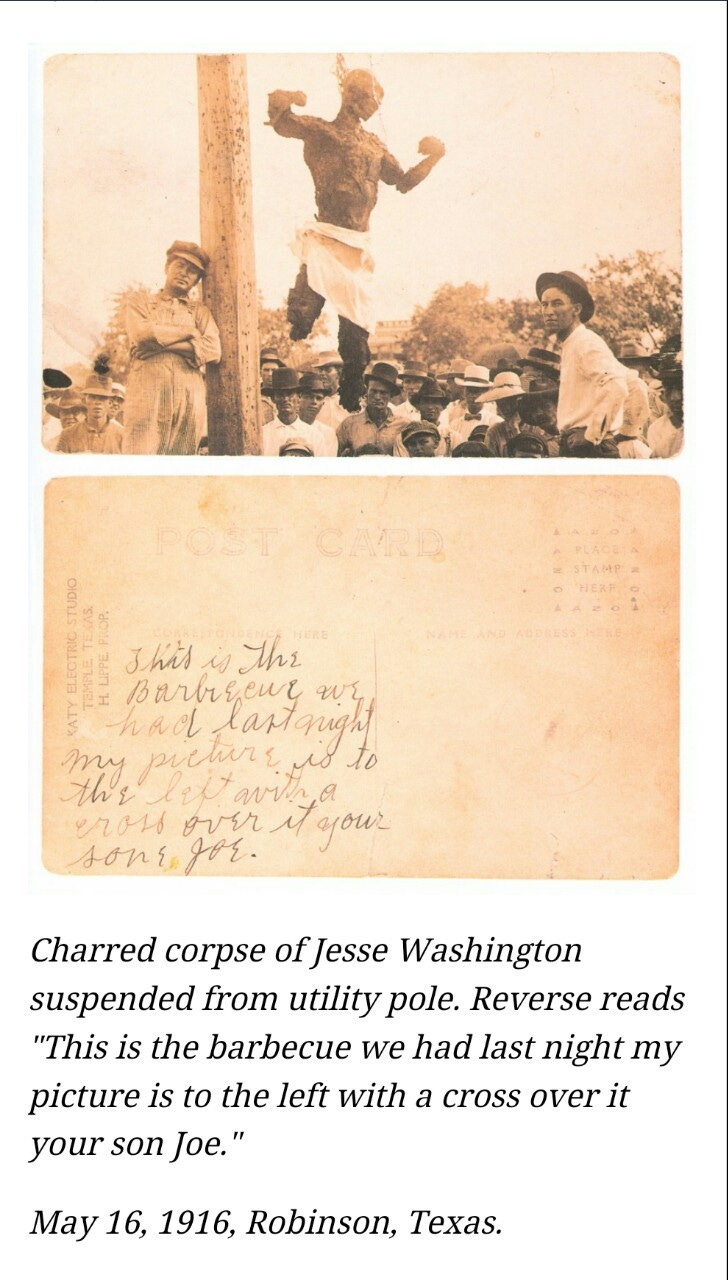 POST CARD
PLACE
STAMP
HERE
CORRESPONDENCE HERE
NAME AND ADDRESS HERE
KATY ELECTRIC STUDIO
TEMPLE TEXAS.
H. LIPPE PROP.
This is the
Barbecue we
had last night
my picture is to
the left with a
cross over it your
sone Joe.
Charred corpse of Jesse Washington
suspended from utility pole. Reverse reads
"This is the barbecue we had last night my
picture is to the left with a cross over it
your son Joe."
May 16, 1916, Robinson, Texas.